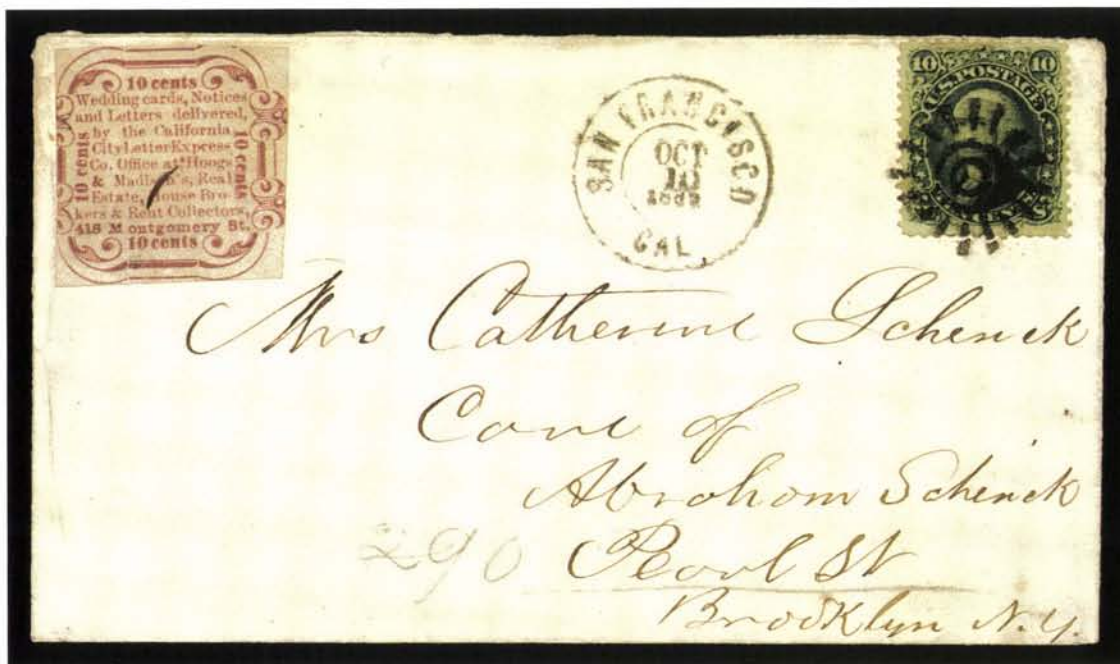 10 cents
Wedding cards, Notices
and Letters delivered,
by the California
City Letter Express
Co. Office at Hoogs
& Madison's, Real
Estate, House Bro-
kers & Rent Collectors,
418 Montgomery St.
10 cents
10 cents
10 cents
SAN FRANCISCO
OCT
10
CAL.
10 10
U.S. POSTAGE
TEN CENTS
Mrs Catherine Schenck
Care of
Abraham Schenck
290 Pearl St
Brooklyn N.Y.